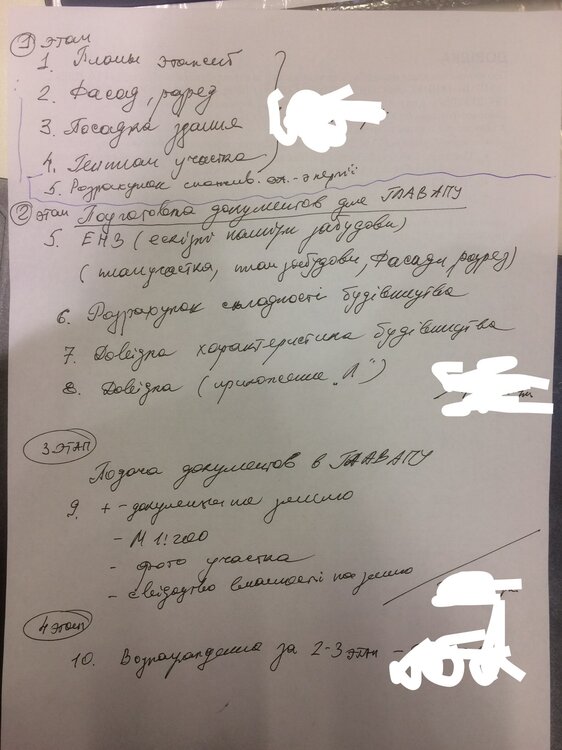 1 этап
1. Планы этажей
2. Фасад, розрез
3. Посадка здания
4. Генплан участка
5. Розрахунок спожив. эл.-энергії
2 этап Подготовка документов для ГЛАВАПУ
5. ЕНЗ (ескізні наміри забудови)
(план участка, план забудови, Фасады, розрез)
6. Розрахунок складності будівництва
7. Довідка характеристика будівництва
8. Довідка (приложение "Л")
3 ЭТАП
Подача документов в ГЛАВАПУ
9. + - документы на землю
- М 1:200
- фото участка
- свідоцтво власності на землю
4 этап
10. Вознаграждение за 2-3 этап -